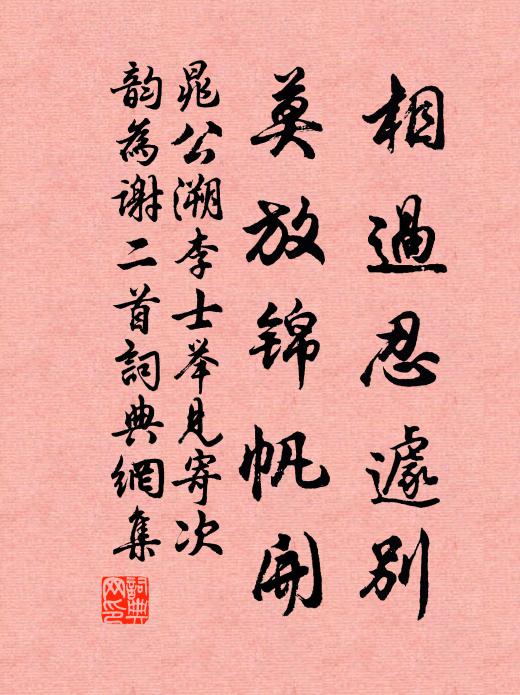 相過忍遽別
莫放錦帆開
晁公溯李士举見寄次
韵為谢二首詞典網集
詞典网印